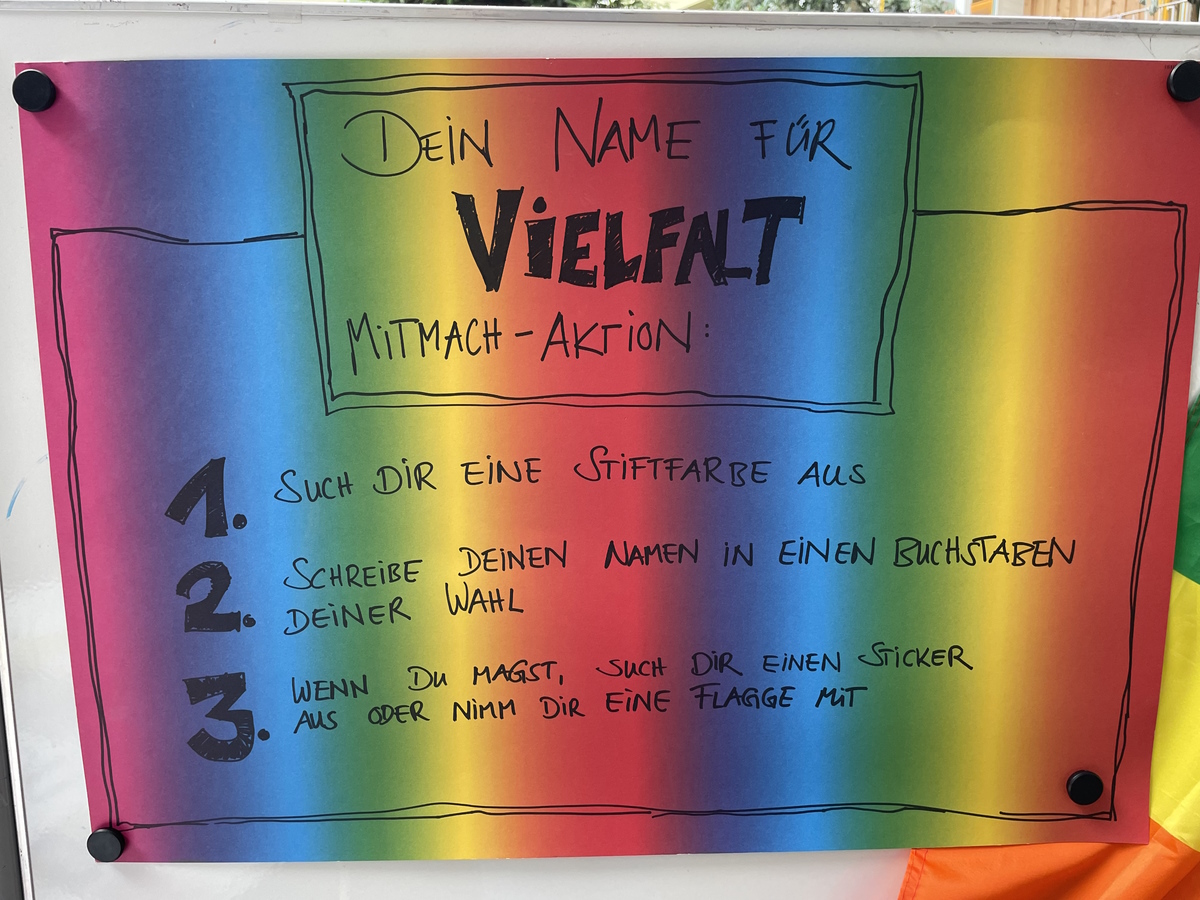 DEiN NAME FÜR
ViELFALT
MiTMACH-AKTiON:
1. SUCH DiR EiNE STiFTFARBE AUS
2. SCHREiBE DEiNEN NAMEN iN EiNEN BUCHSTABEN
DEiNER WAHL
3. WENN DU MAGST, SUCH DiR EiNEN STiCKER
AUS ODER NiMM DiR EiNE FLAGGE MiT